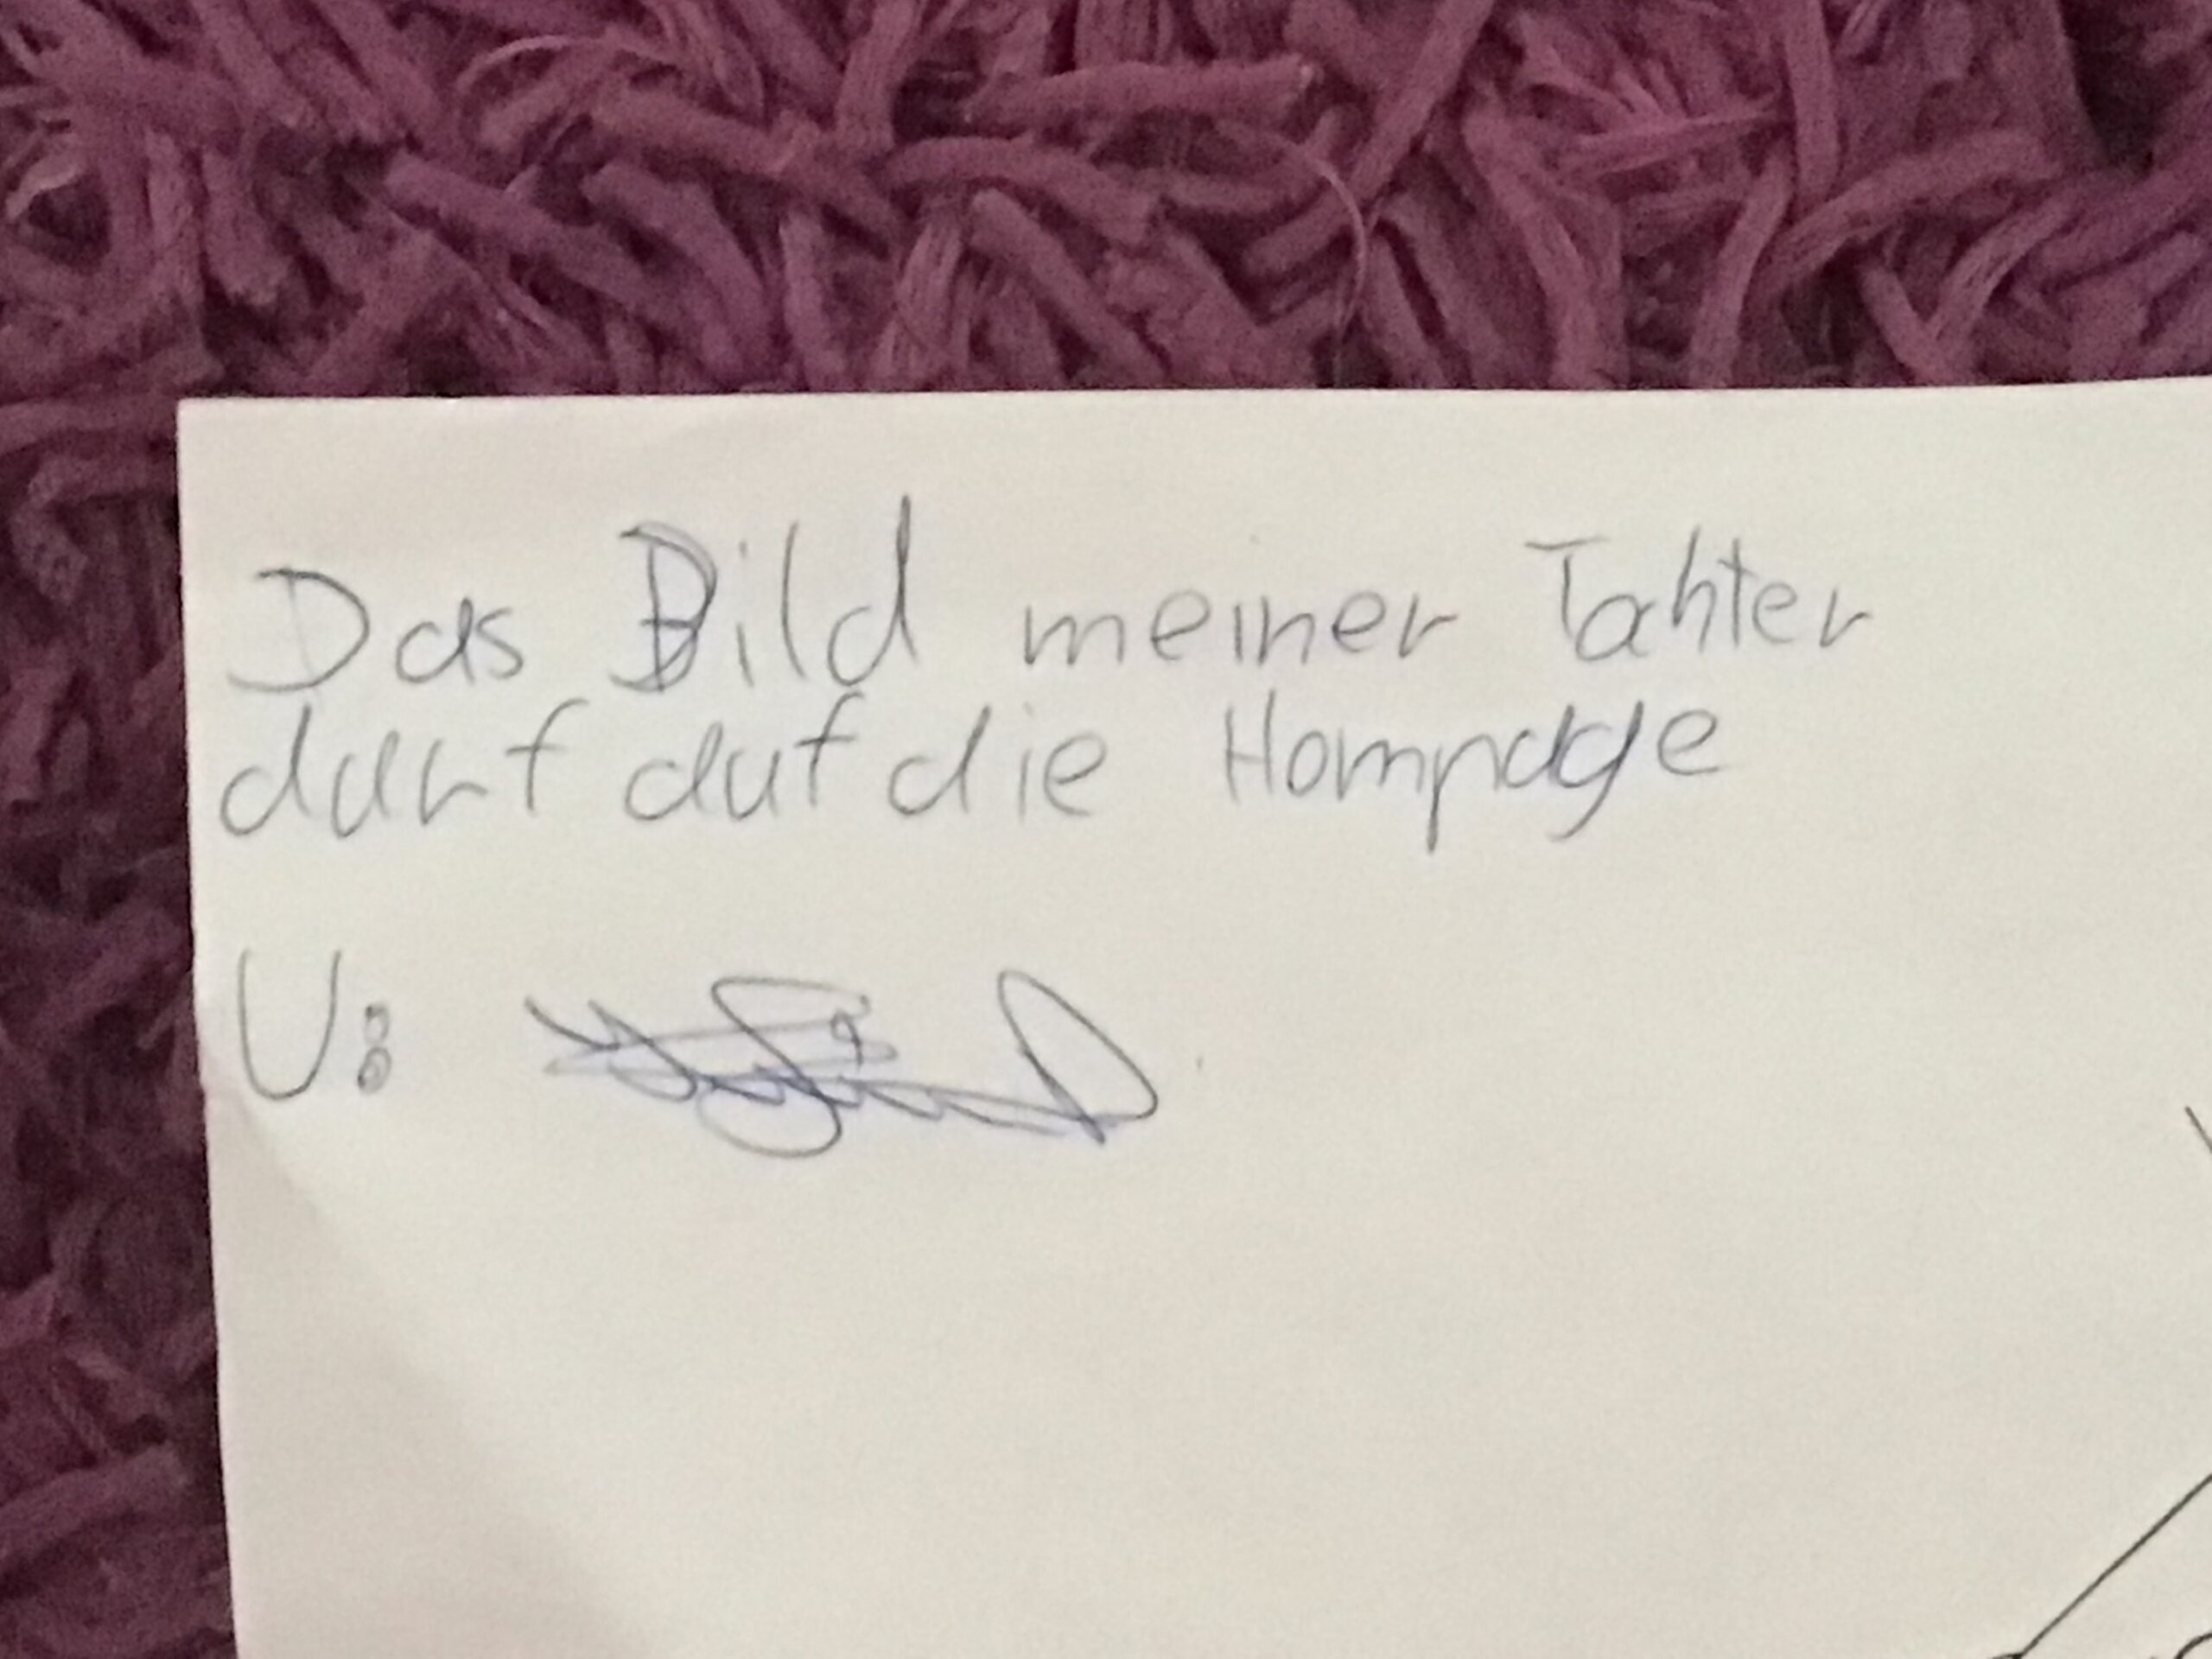 Das Bild meiner Tahter
darf auf die Hompage
U: